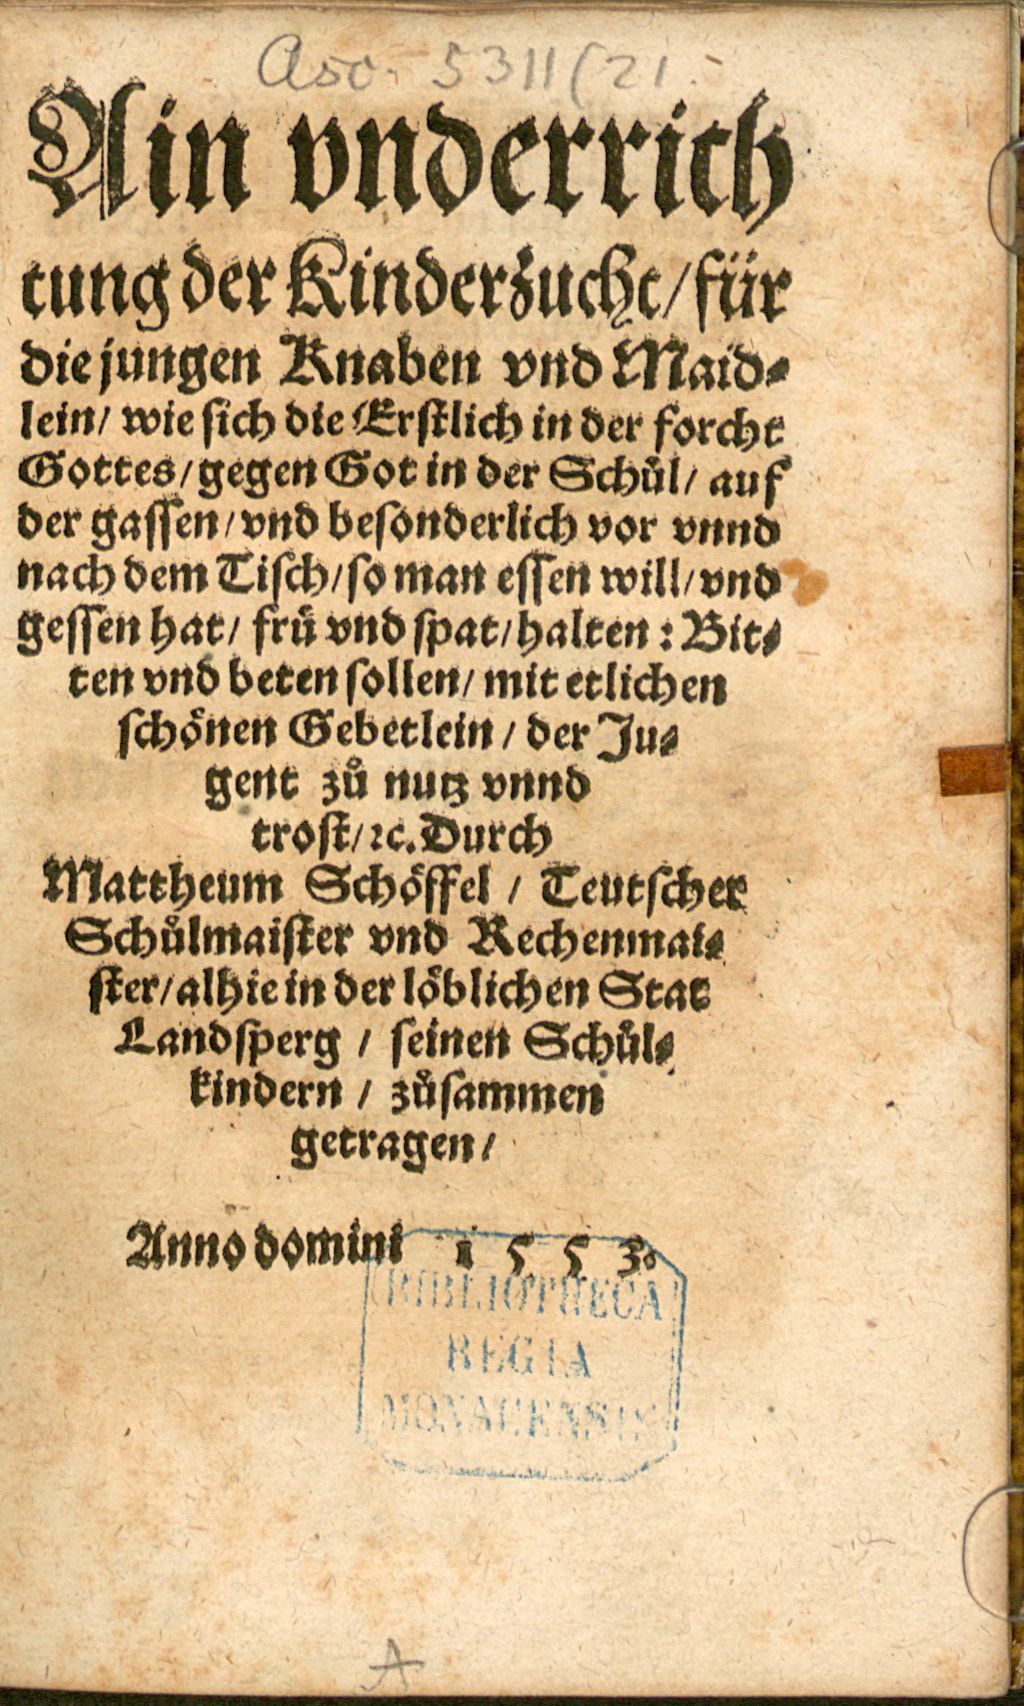 Asc. 5311(21.
Ain vnderrich
tung der Kinderzucht / für
die jungen Knaben vnd Maid⸗
lein / wie sich die Erstlich in der forcht
Gottes / gegen Got in der Schůl / auf
der gassen / vnd besonderlich vor vnnd
nach dem Tisch / so man essen will / vnd
gessen hat / frü vnd spat / halten : Bit⸗
ten vnd beten sollen / mit etlichen
schönen Gebetlein / der Ju⸗
gent zů nutz vnnd
trost / ꝛc. Durch
Mattheum Schöffel / Teutscher
Schůlmaister vnd Rechenmai⸗
ster / alhie in der löblichen Stat
Landsperg / seinen Schůl⸗
kindern / zůsammen
getragen /
Anno domini 1553.
BIBLIOTHECA
REGIA
MONACENSIS
A